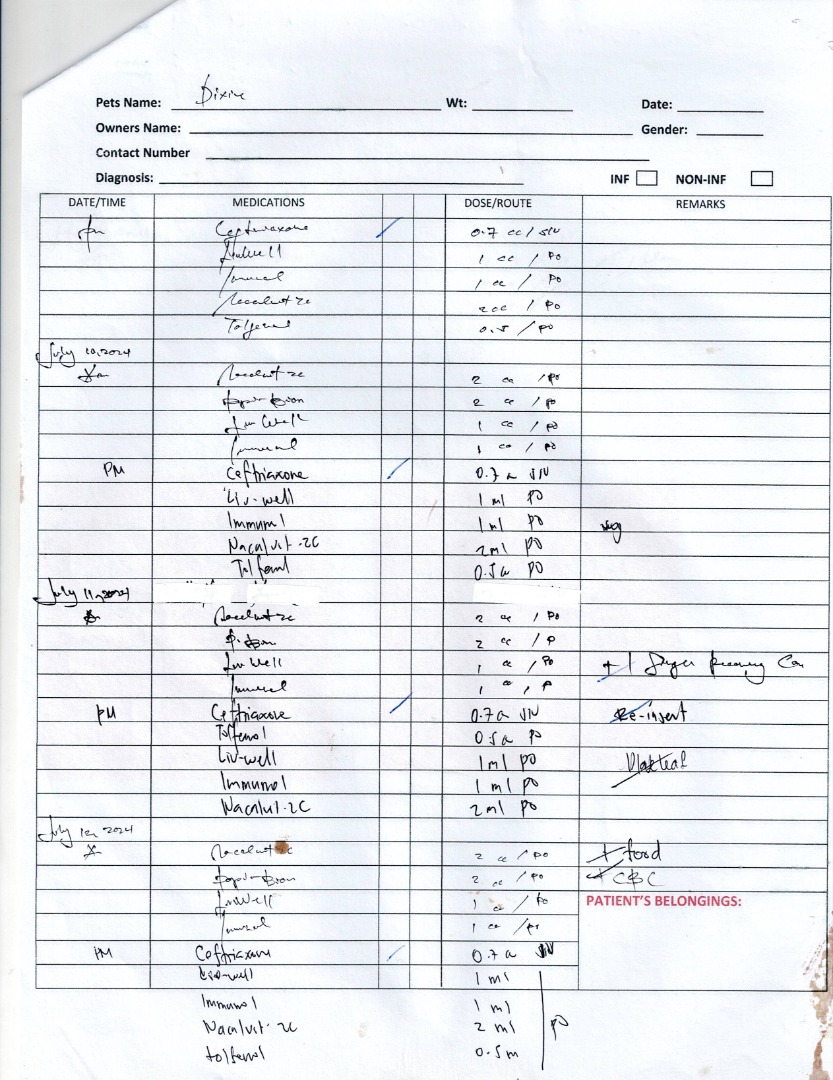 Pets Name: Dixie Wt: Date:
Owners Name: Gender:
Contact Number
Diagnosis: INF NON-INF
DATE/TIME MEDICATIONS DOSE/ROUTE REMARKS
Ceftriaxone 0.7 cc / SIV
Livwell 1 cc / PO
Immunol 1 cc / PO
Nacalvit 2c 2 cc / PO
Tolfenol 0.5 / PO
July 10, 2024
Nacalvit 2c 2 cc / PO
2 cc / PO
Liv Well 1 cc / PO
Immunol 1 cc / PO
PM Ceftriaxone 0.7 SIV
Liv-well 1 ml PO
Immunol 1 ml PO
Nacalvit-2C 2 ml PO
Tolfenol 0.5 PO
July 11, 2024
Nacalvit 2c 2 cc / PO
2 cc / P
Liv Well 1 cc / PO + 1 Recovery Can
Immunol 1 cc / P
PM Ceftriaxone 0.7 SIV Re-insert
Tolfenol 0.5 PO
Liv-well 1 ml PO
Immunol 1 ml PO
Nacalvit-2C 2 ml PO
July 12, 2024
Nacalvit 2c 2 cc / PO + food
2 cc / PO + CBC
LivWell 1 cc / PO PATIENT'S BELONGINGS:
Immunol 1 cc / PO
PM Ceftriaxone 0.7 SIV
Liv-well 1 ml
Immunol 1 ml
Nacalvit-2C 2 ml PO
tolfenol 0.5 m